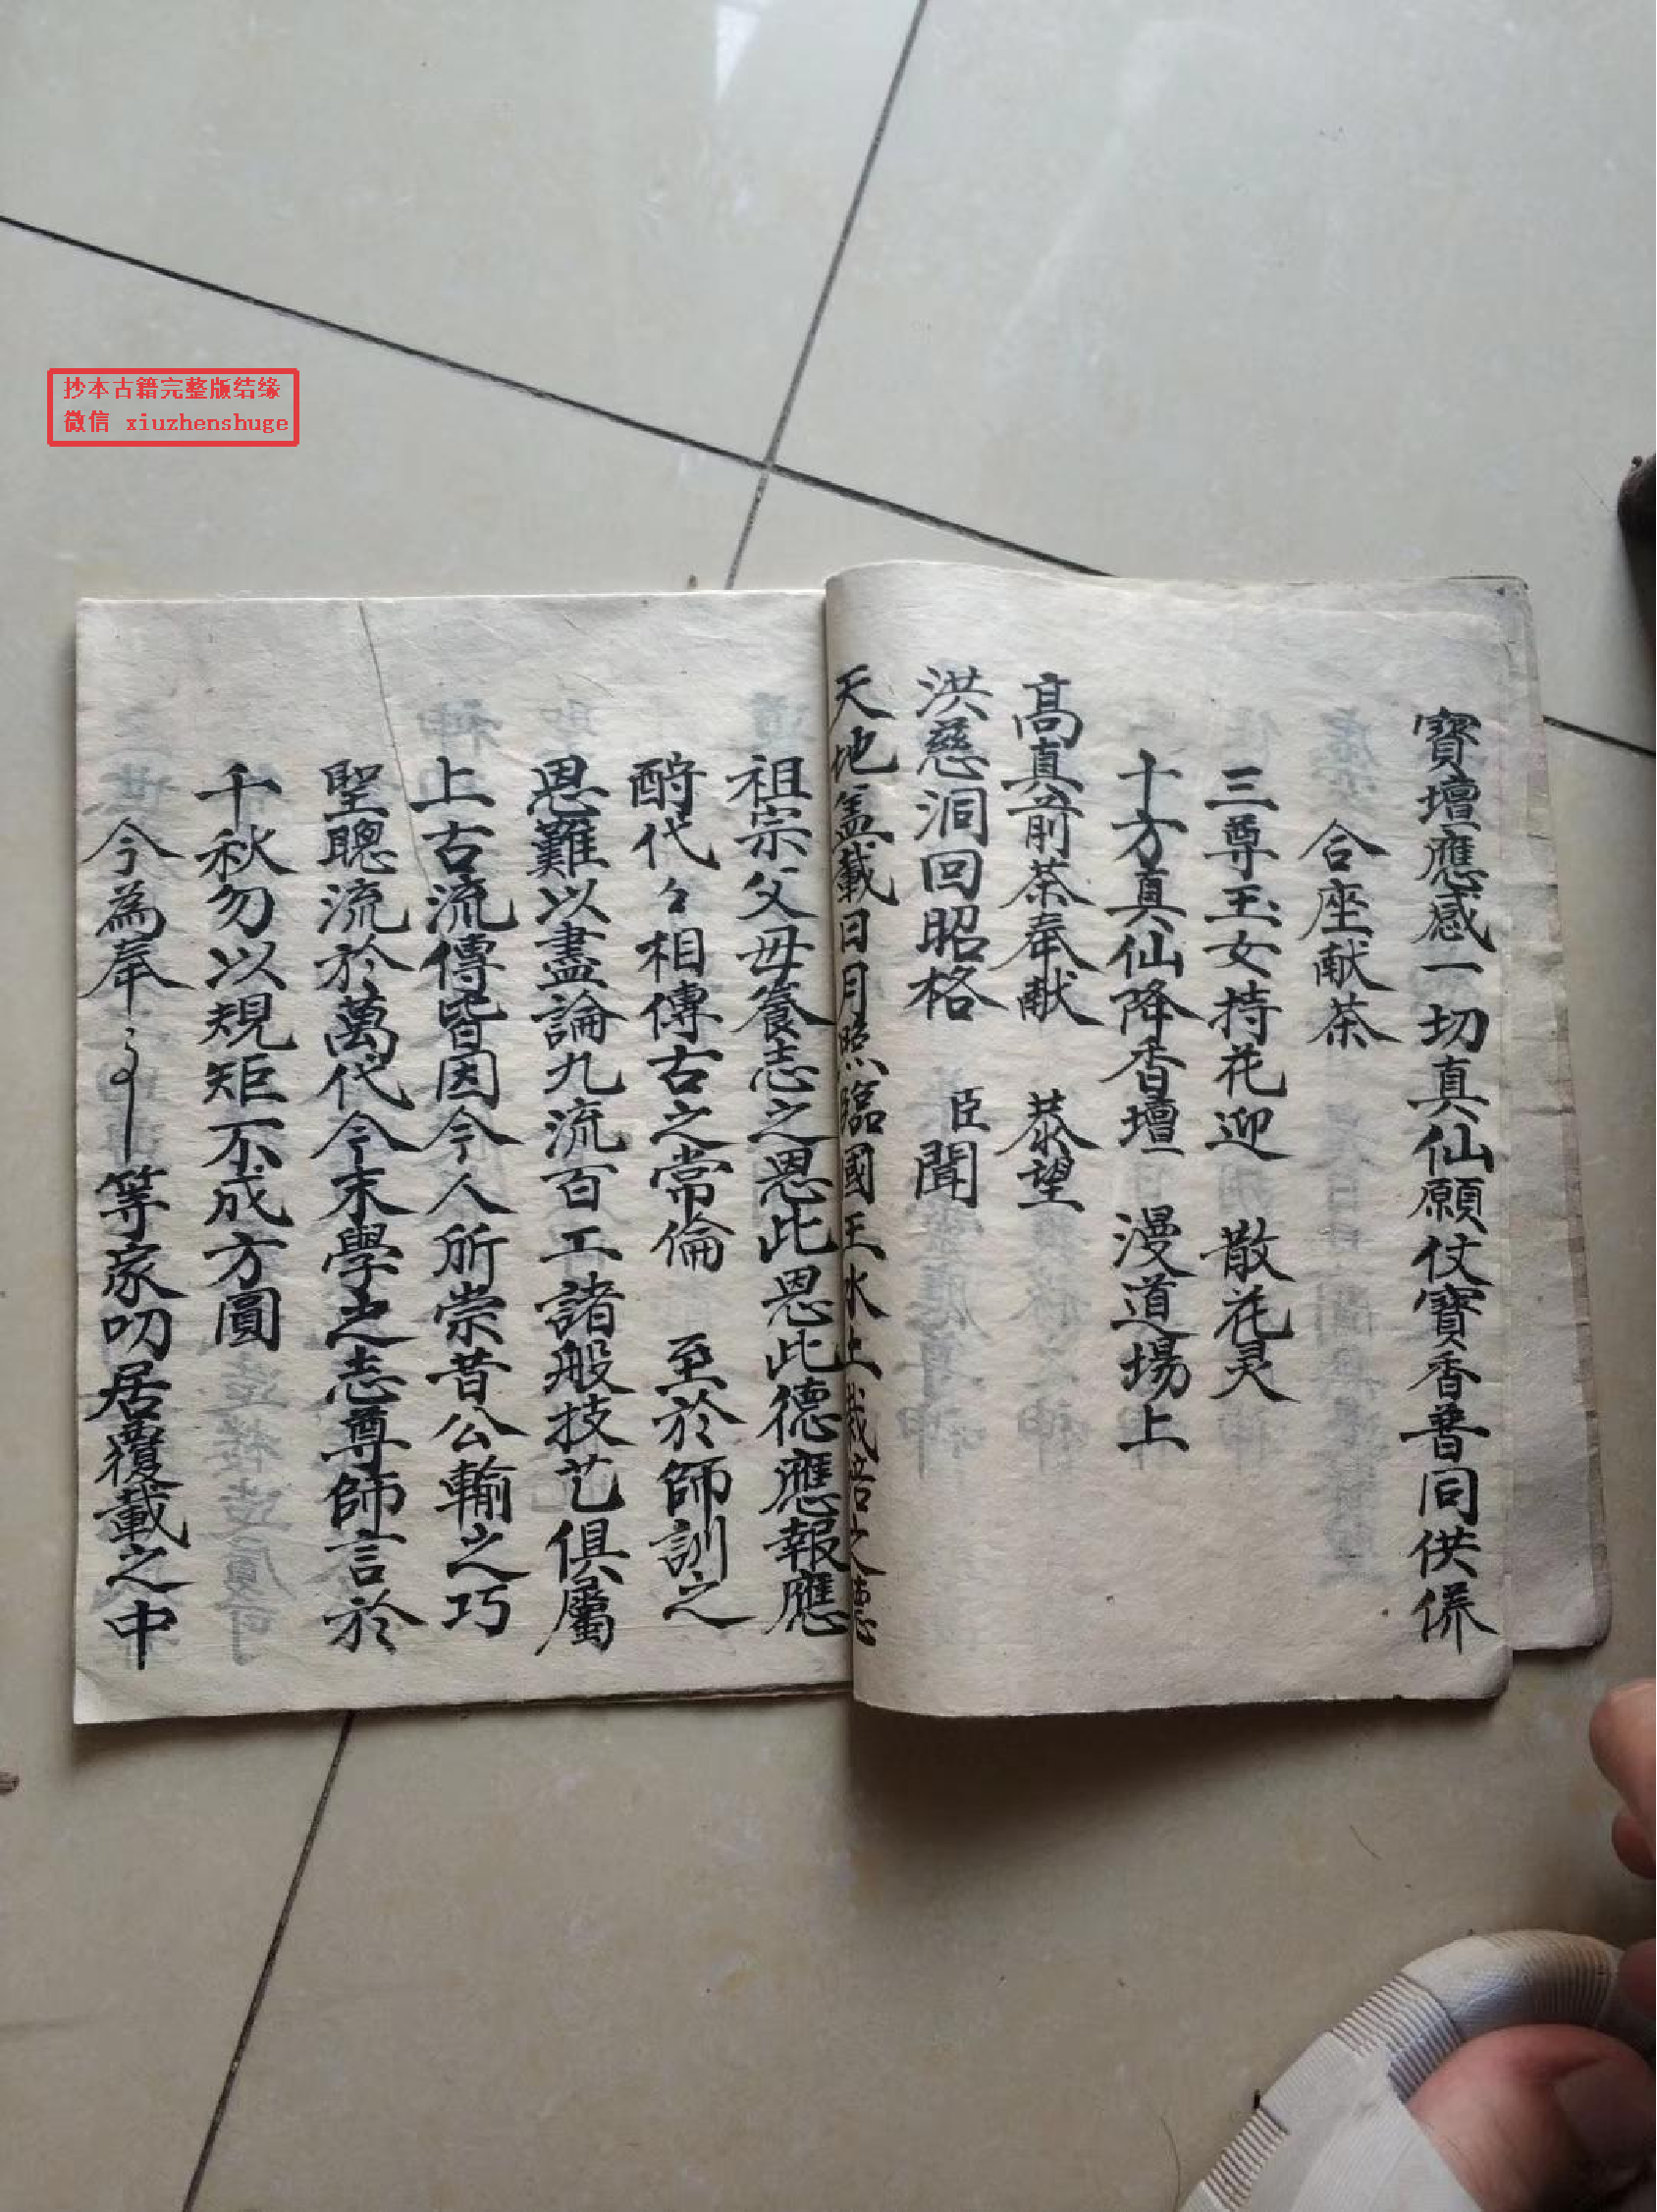 抄本古籍完整版结缘
微信 xiuzhenshuge
寶壇應感一切真仙願仗寶香普同供养
合座献茶
三尊玉女持花迎 散花灵
十方真仙降香壇 漫道場上
高真前茶奉献 恭望
洪慈洞回昭格 臣聞
天地盖載日月照臨國王水土
祖宗父母養志之恩此恩此德應報應
酧代々相傳古之常倫 至於師訓之
恩難以盡論九流百工諸般技艺俱屬
上古流傳皆因今人所崇昔公輸之巧
聖聰流於萬代今末學之志尊師言於
千秋勿以規矩不成方圓
今為奉 等家叨居覆載之中